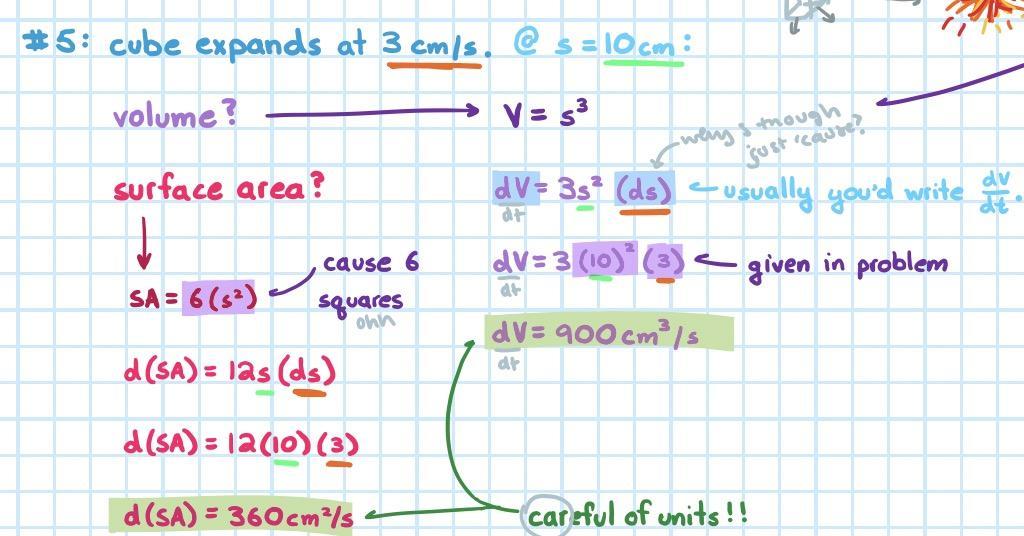 #5: cube expands at 3 cm/s. @ s = 10cm:
volume?
V = s³
surface area?
just 'cause?
dV/dt = 3s² (ds)
usually you'd write dV/dt.
SA = 6(s²)
cause 6
squares
ohh
dV/dt = 3(10)² (3)
given in problem
dV/dt = 900cm³/s
d(SA) = 12s (ds)
d(SA) = 12(10)(3)
d(SA) = 360cm²/s
careful of units!!